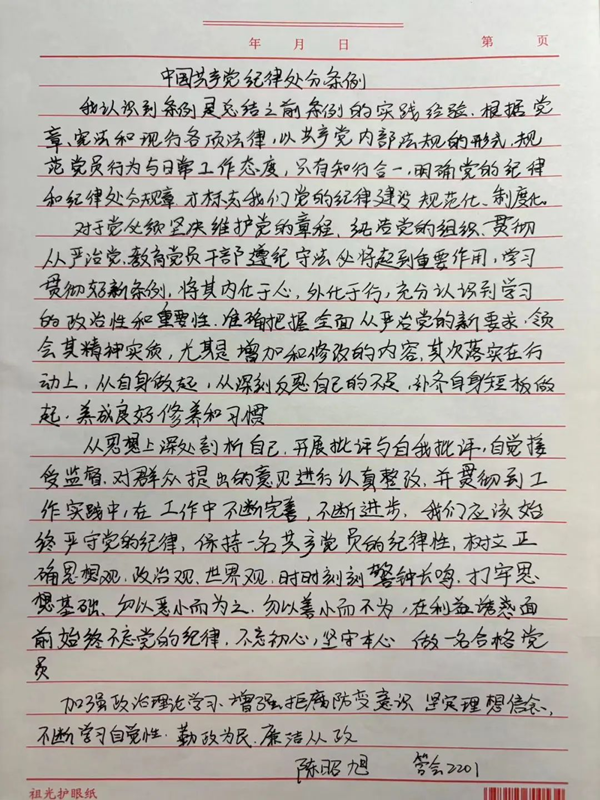 年 月 日 第 页
中国共产党纪律处分条例
我认识到条例是总结之前条例的实践经验，根据党
章、宪法和现行各项法律，以共产党内部法规的形式，规
范党员行为与日常工作态度，只有知行合一，明确党的纪律
和纪律处分规章才标志我们党的纪律建设规范化、制度化。
对于党必须坚决维护党的章程、纯洁党的组织、贯彻
从严治党、教育党员干部遵纪守法处将起到重要作用，学习
贯彻好新条例，将其内化于心，外化于行，充分认识到学习
的政治性和重要性，准确把握全面从严治党的新要求，领
会其精神实质，尤其是增加和修改的内容，其次落实在行
动上，从自身做起，从深刻反思自己的不足，补齐自身短板做
起，养成良好修养和习惯
从思想上深处剖析自己，开展批评与自我批评，自觉接
受监督，对群众提出的意见进行认真整改，并贯彻到工
作实践中，在工作中不断完善，不断进步，我们应该始
终严守党的纪律，保持一名共产党员的纪律性，树立正
确思想观、政治观、世界观，时时刻刻警钟长鸣，打牢思
想基础、勿以恶小而为之、勿以善小而不为，在利益诱惑面
前始终不忘党的纪律，不忘初心，坚守本心 做一名合格党
员
加强政治理论学习、增强拒腐防变意识 坚定理想信念，
不断学习自觉性、勤政为民、廉洁从政
陈昭旭 答会2201
祖光护眼纸